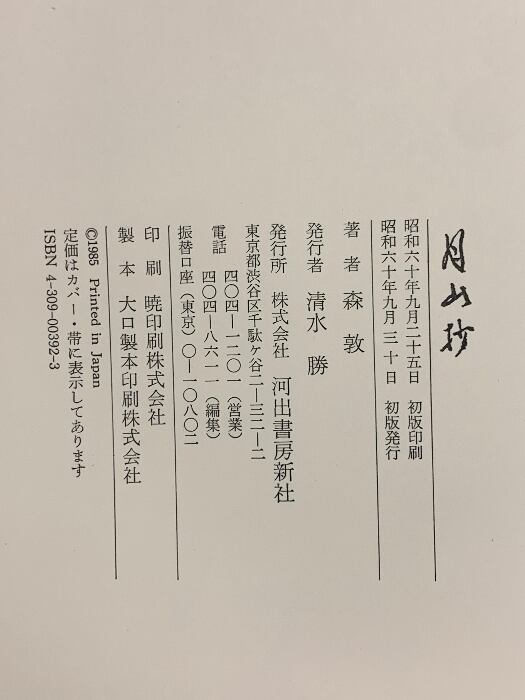 月山抄
昭和六十年九月二十五日 初版印刷
昭和六十年九月三十日 初版発行
著者 森敦
発行者 清水勝
発行所 株式会社 河出書房新社
東京都渋谷区千駄ケ谷二―三二―二
電話 四〇四―一二〇一(営業)
四〇四―八六一一(編集)
振替口座(東京)〇―一〇八〇二
印刷 暁印刷株式会社
製本 大口製本印刷株式会社
©1985 Printed in Japan
定価はカバー・帯に表示してあります
ISBN 4-309-00392-3